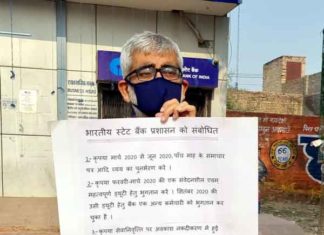 BANK OF INDIA
भारतीय स्टेट बैंक प्रशासन को संबोधित
1- कृपया मार्च 2020 से जून 2020 पाँच माह के समाचार
पत्र आदि व्यय का पुनर्भरण करें ।
2- कृपया फरवरी-मार्च 2020 की एक संवेदनशील एवम
महत्वपूर्ण ड्यूटी हेतु भुगतान करें । सितंबर 2020 की
उसी ड्यूटी हेतु बैंक एक अन्य कर्मचारी को भुगतान कर
चुका है ।
3- कृपया सेवानिवृत्ति पर अवकाश नकदीकरण में हुई